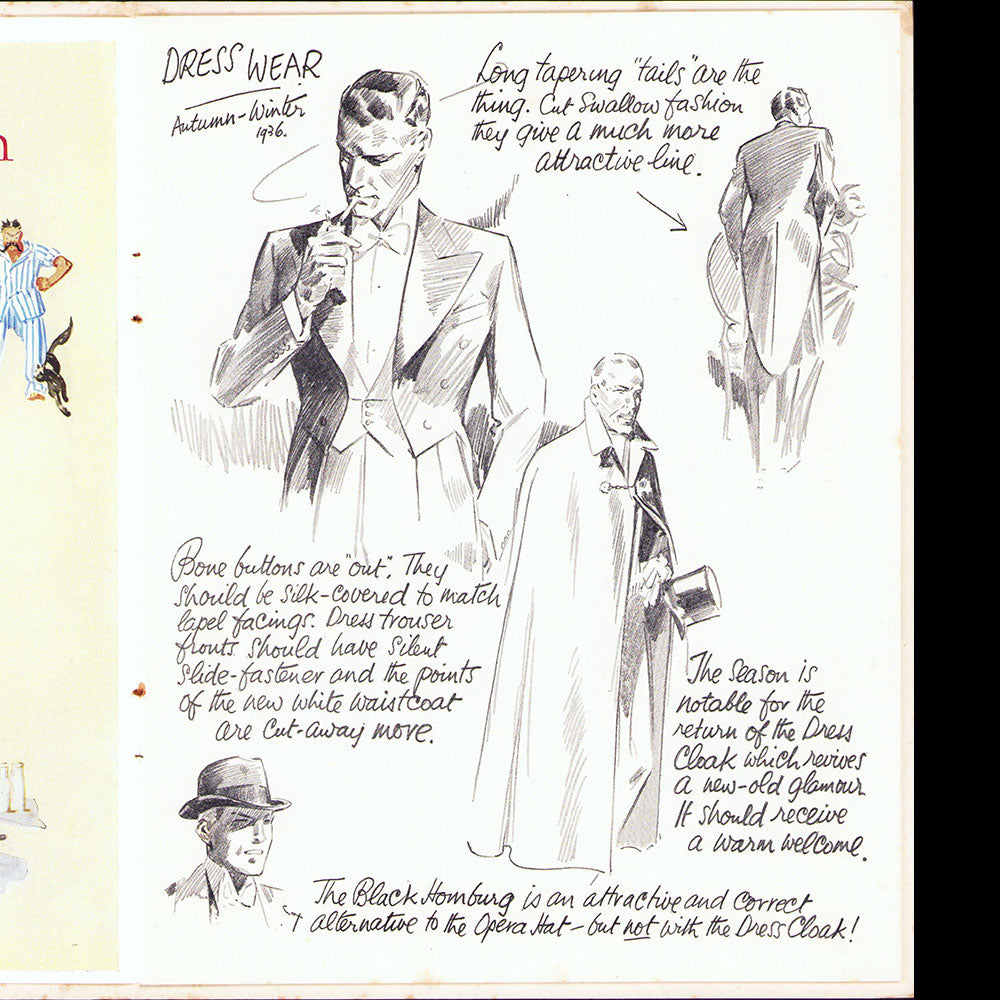 DRESS WEAR
Autumn-Winter
1936.
Long tapering "tails" are the
thing. Cut Swallow fashion
they give a much more
attractive line.
Bone buttons are "out". They
should be silk-covered to match
lapel facings. Dress trouser
fronts should have silent
slide-fastener and the points
of the new white waistcoat
are cut-away more.
The season is
notable for the
return of the Dress
Cloak which revives
a new-old glamour
It should receive
a warm welcome.
The Black Homburg is an attractive and correct
alternative to the Opera Hat - but not with the Dress Cloak!